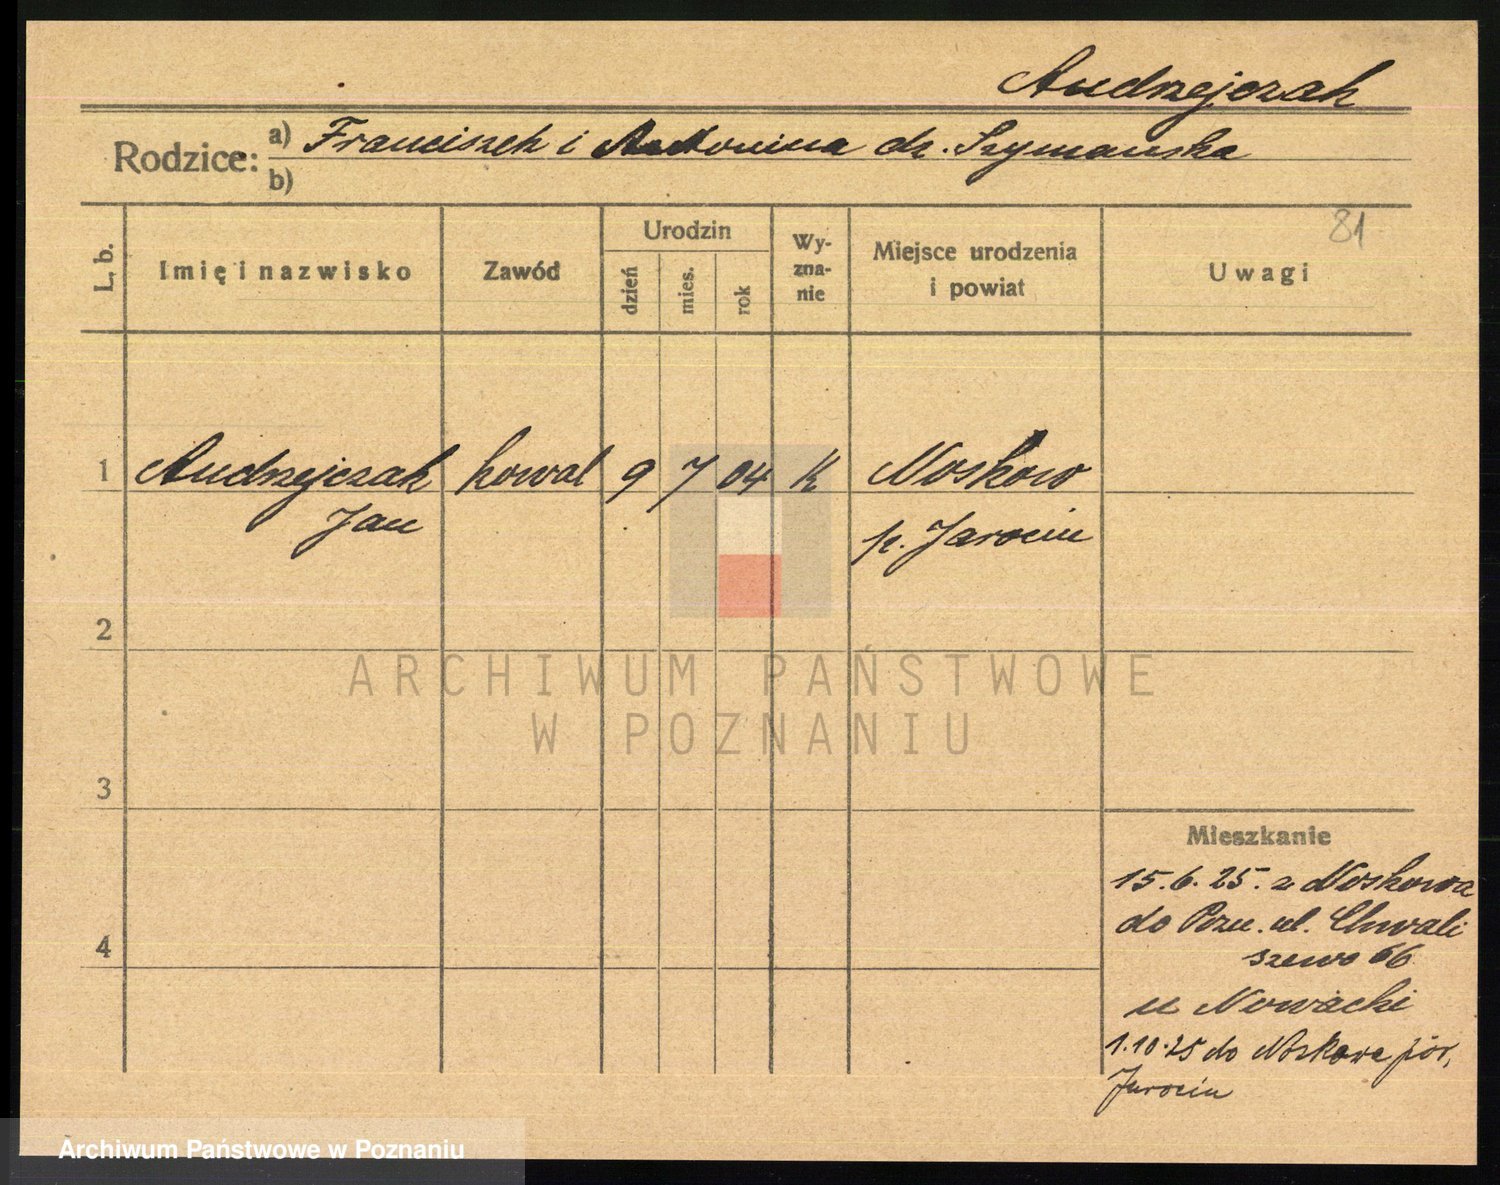 Andrzejczak
Rodzice: a) Franciszek i Antonina dz. Szymańska
b)
81
L. b.
Imię i nazwisko
Zawód
Urodzin
dzień
mies.
rok
Wy-
zna-
nie
Miejsce urodzenia
i powiat
Uwagi
1 Andrzejczak kowal 9 7 04 K Noskow
Jan p. Jarocin
2
ARCHIWUM PAŃSTWOWE
W POZNANIU
3
Mieszkanie
15.6.25. z Noskowa
do Pozn. ul. Chwali
4
szewo 66
u Nowacki
1.10.25 do Noskowa pow,
Jarocin
Archiwum Państwowe w Poznaniu